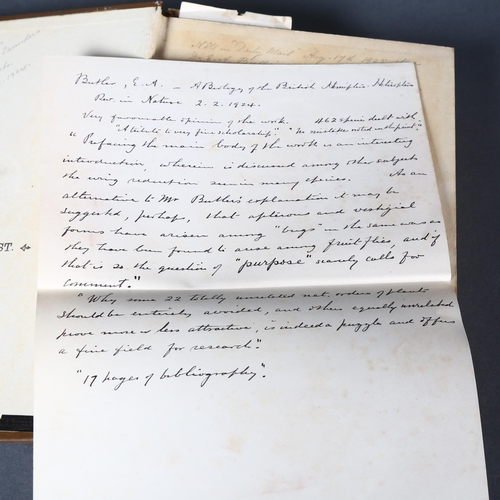 Butler, E. A. – A Biology of the British Hemiptera-Heteroptera
Rev. in Nature 2.2.1924.
Very favourable opinion of the work. 462 species dealt with
"A tribute to very fine scholarship"
"Prefacing the main body of the work is an interesting
introduction, wherein is discussed among other subjects
the wing reduction seen in many species. As an
alternative to Mr Butler's explanation it may be
suggested, perhaps, that apterous and vestigial
forms have arisen among "bugs" in the same way as
they have been found to arise among fruit flies, and if
that is so the question of "purpose" scarcely calls for
comment."
"Why some 22 totally unrelated nat. orders of plants
should be entirely avoided, and others equally unrelated
prove more or less attractive, is indeed a puzzle and offers
a fine field for research".
"17 pages of bibliography".
ST.